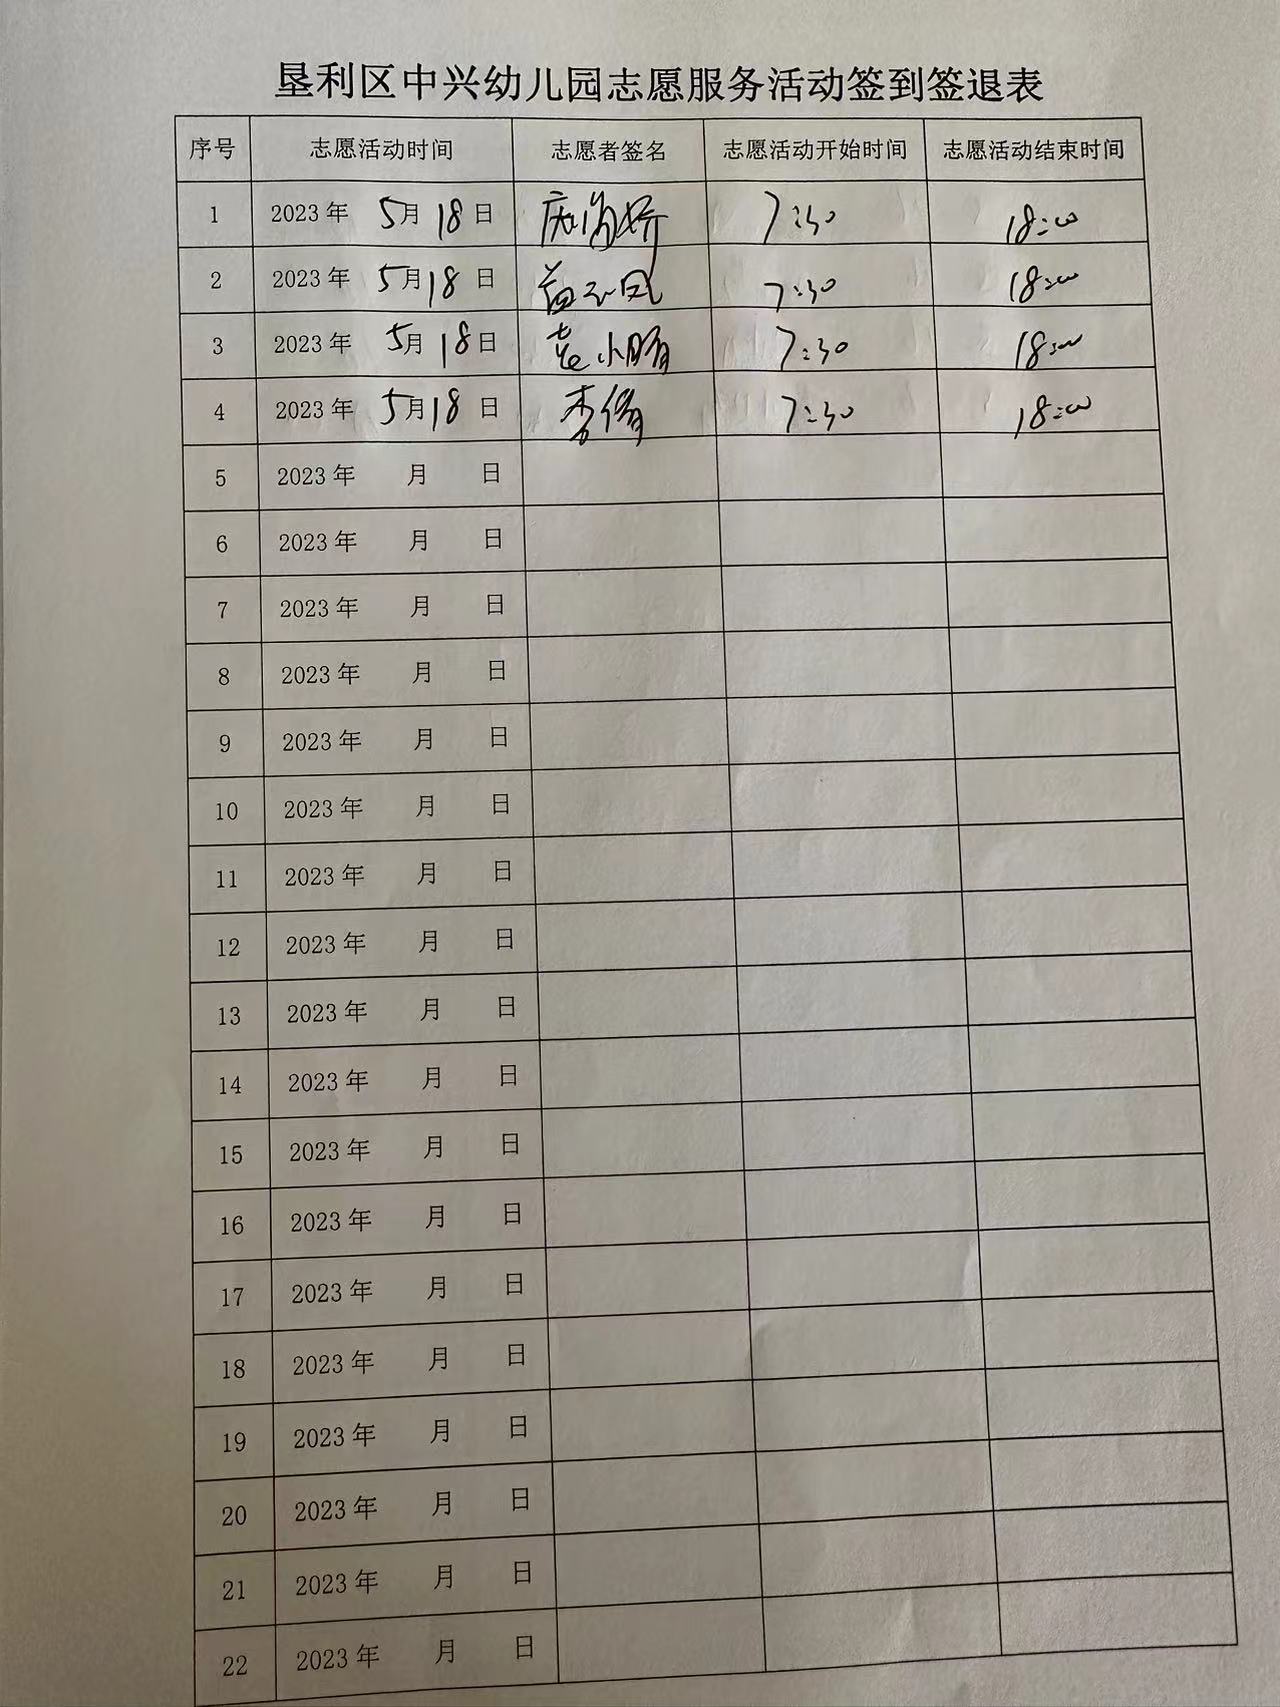 垦利区中兴幼儿园志愿服务活动签到签退表
序号 志愿活动时间 志愿者签名 志愿活动开始时间 志愿活动结束时间
1 2023年 5月18日 7:30 18:00
2 2023年 5月18日 7:30 18:00
3 2023年 5月18日 7:30 18:00
4 2023年 5月18日 李倩 7:30 18:00
5 2023年 月 日
6 2023年 月 日
7 2023年 月 日
8 2023年 月 日
9 2023年 月 日
10 2023年 月 日
11 2023年 月 日
12 2023年 月 日
13 2023年 月 日
14 2023年 月 日
15 2023年 月 日
16 2023年 月 日
17 2023年 月 日
18 2023年 月 日
19 2023年 月 日
20 2023年 月 日
21 2023年 月 日
22 2023年 月 日